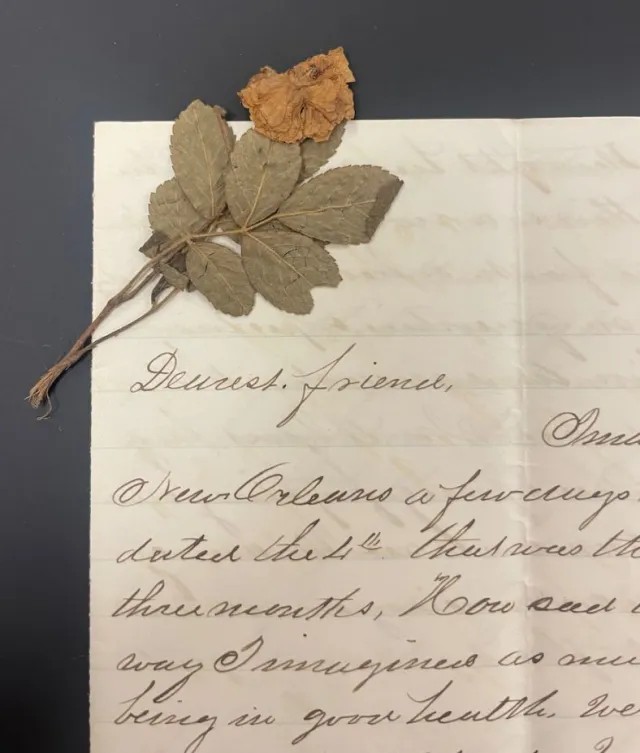 Dearest friend,
New Orleans a few days
dated the 4th that was th
three months, How sad
way I imagined as mu
being in good health. We